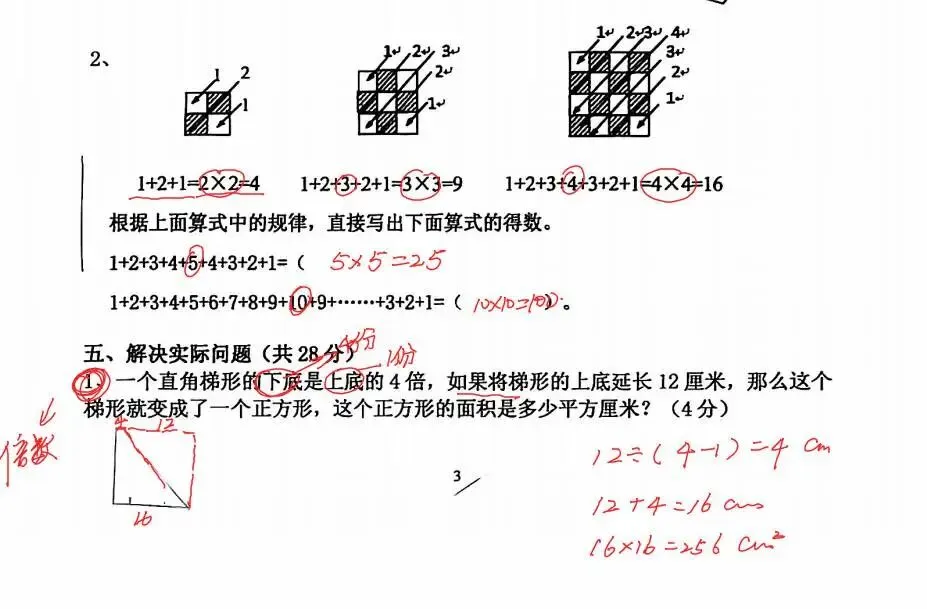 2、
1 2 1
1 2 3 2 1
1 2 3 4 3 2 1
1+2+1=2×2=4 1+2+3+2+1=3×3=9 1+2+3+4+3+2+1=4×4=16
根据上面算式中的规律，直接写出下面算式的得数。
1+2+3+4+5+4+3+2+1=（ 5×5=25
1+2+3+4+5+6+7+8+9+10+9+……+3+2+1=（ 10×10=100）。
4份
五、解决实际问题（共 28 分） 1份
1、一个直角梯形的下底是上底的 4 倍，如果将梯形的上底延长 12 厘米，那么这个
梯形就变成了一个正方形，这个正方形的面积是多少平方厘米？（4 分）
倍数
4 12
16
12÷(4-1)=4 cm
12+4=16 cm
16×16=256 cm²
3